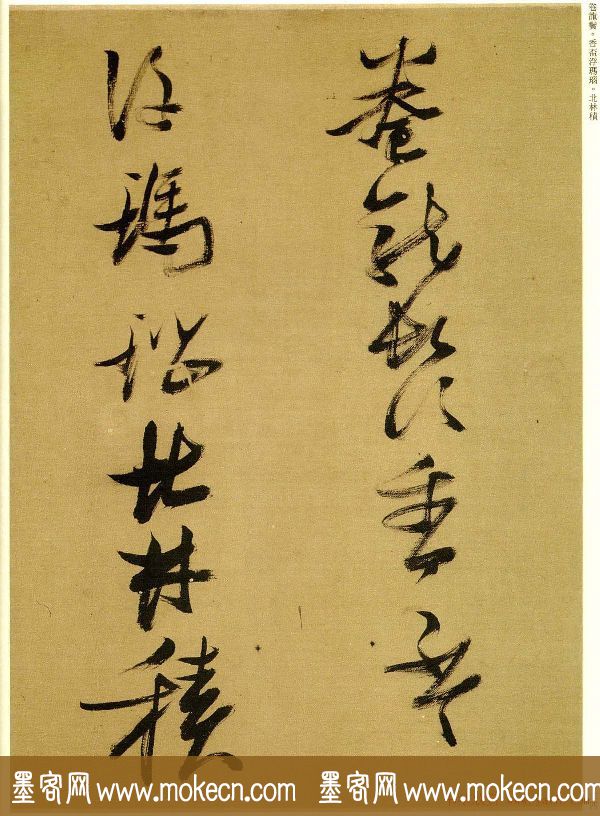 卷龍鬚香盃
浮瑪瑙北林積
卷龍鬚。香盃浮瑪瑙。北林積
墨客网 www.mokecn.com 墨客网 www.mokecn.com